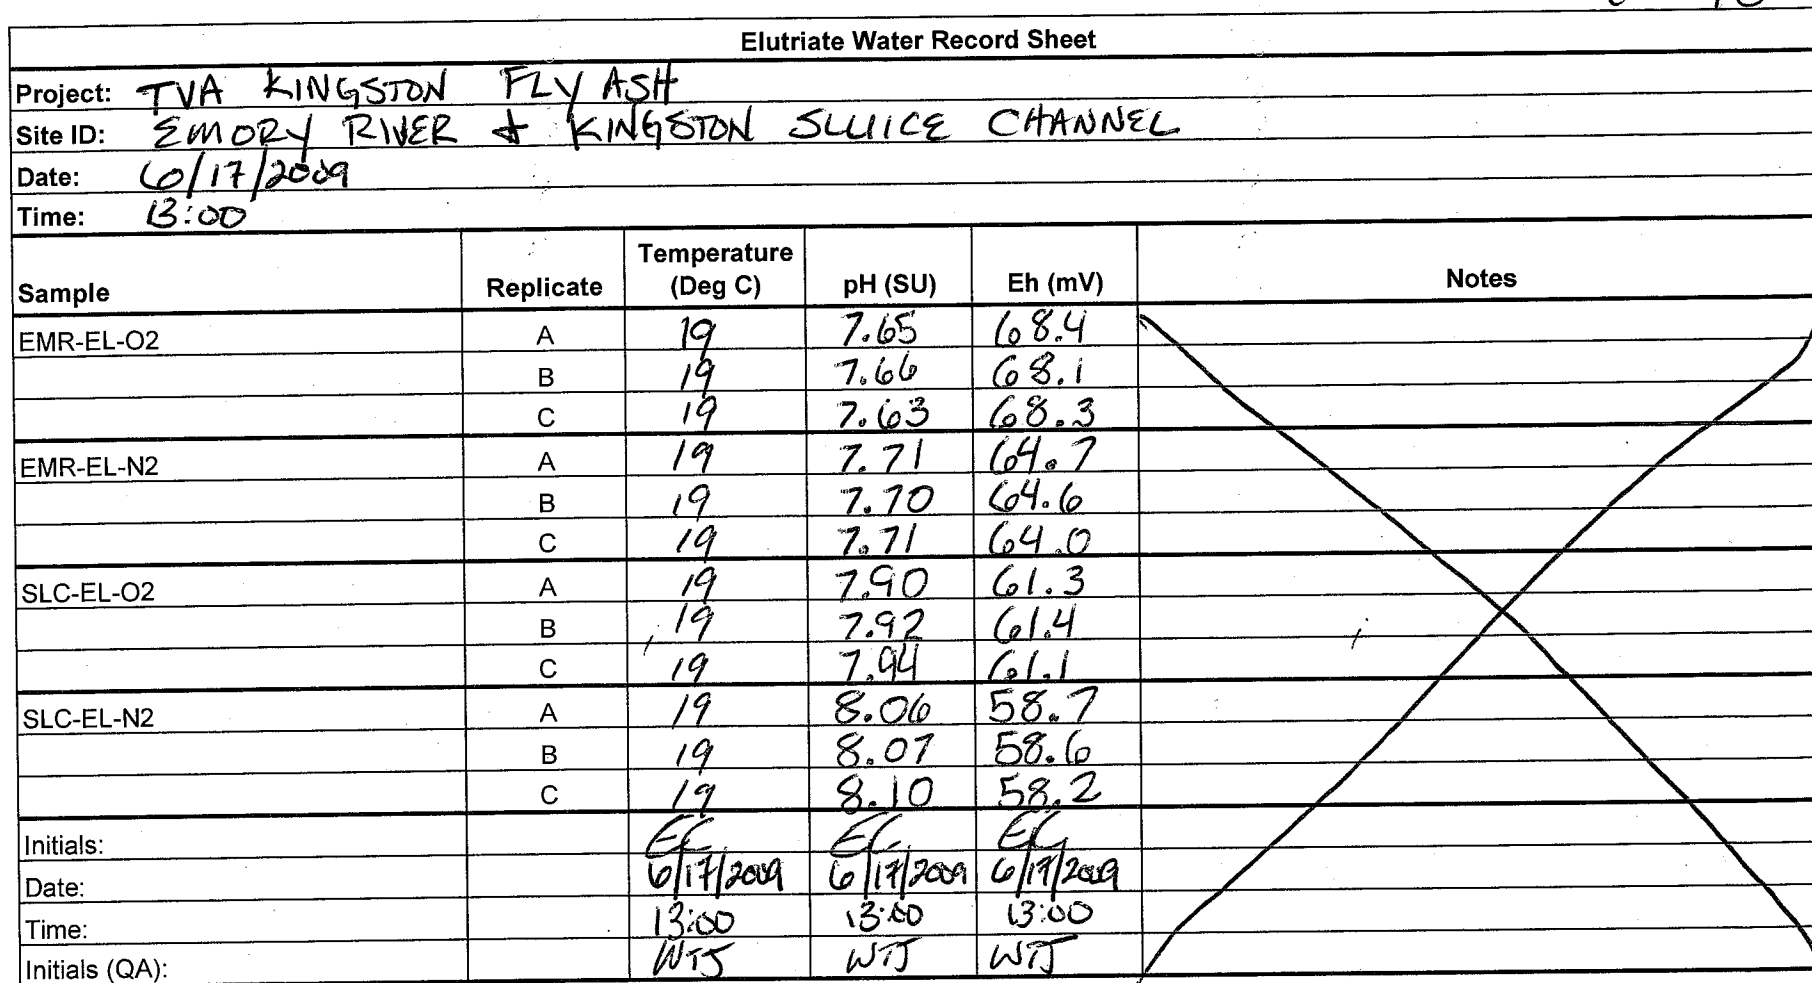 Elutriate Water Record Sheet
Project: TVA KINGSTON FLY ASH
Site ID: EMORY RIVER & KINGSTON SLUICE CHANNEL
Date: 6/17/2009
Time: 13:00
Sample Replicate Temperature (Deg C) pH (SU) Eh (mV) Notes
EMR-EL-O2 A 19 7.65 68.4
B 19 7.66 68.1
C 19 7.63 68.3
EMR-EL-N2 A 19 7.71 64.7
B 19 7.70 64.6
C 19 7.71 64.0
SLC-EL-O2 A 19 7.90 61.3
B 19 7.92 61.4
C 19 7.94 61.1
SLC-EL-N2 A 19 8.06 58.7
B 19 8.07 58.6
C 19 8.10 58.2
Initials: EC EC EC
Date: 6/17/2009 6/17/2009 6/17/2009
Time: 13:00 13:00 13:00
Initials (QA): WTJ WTJ WTJ